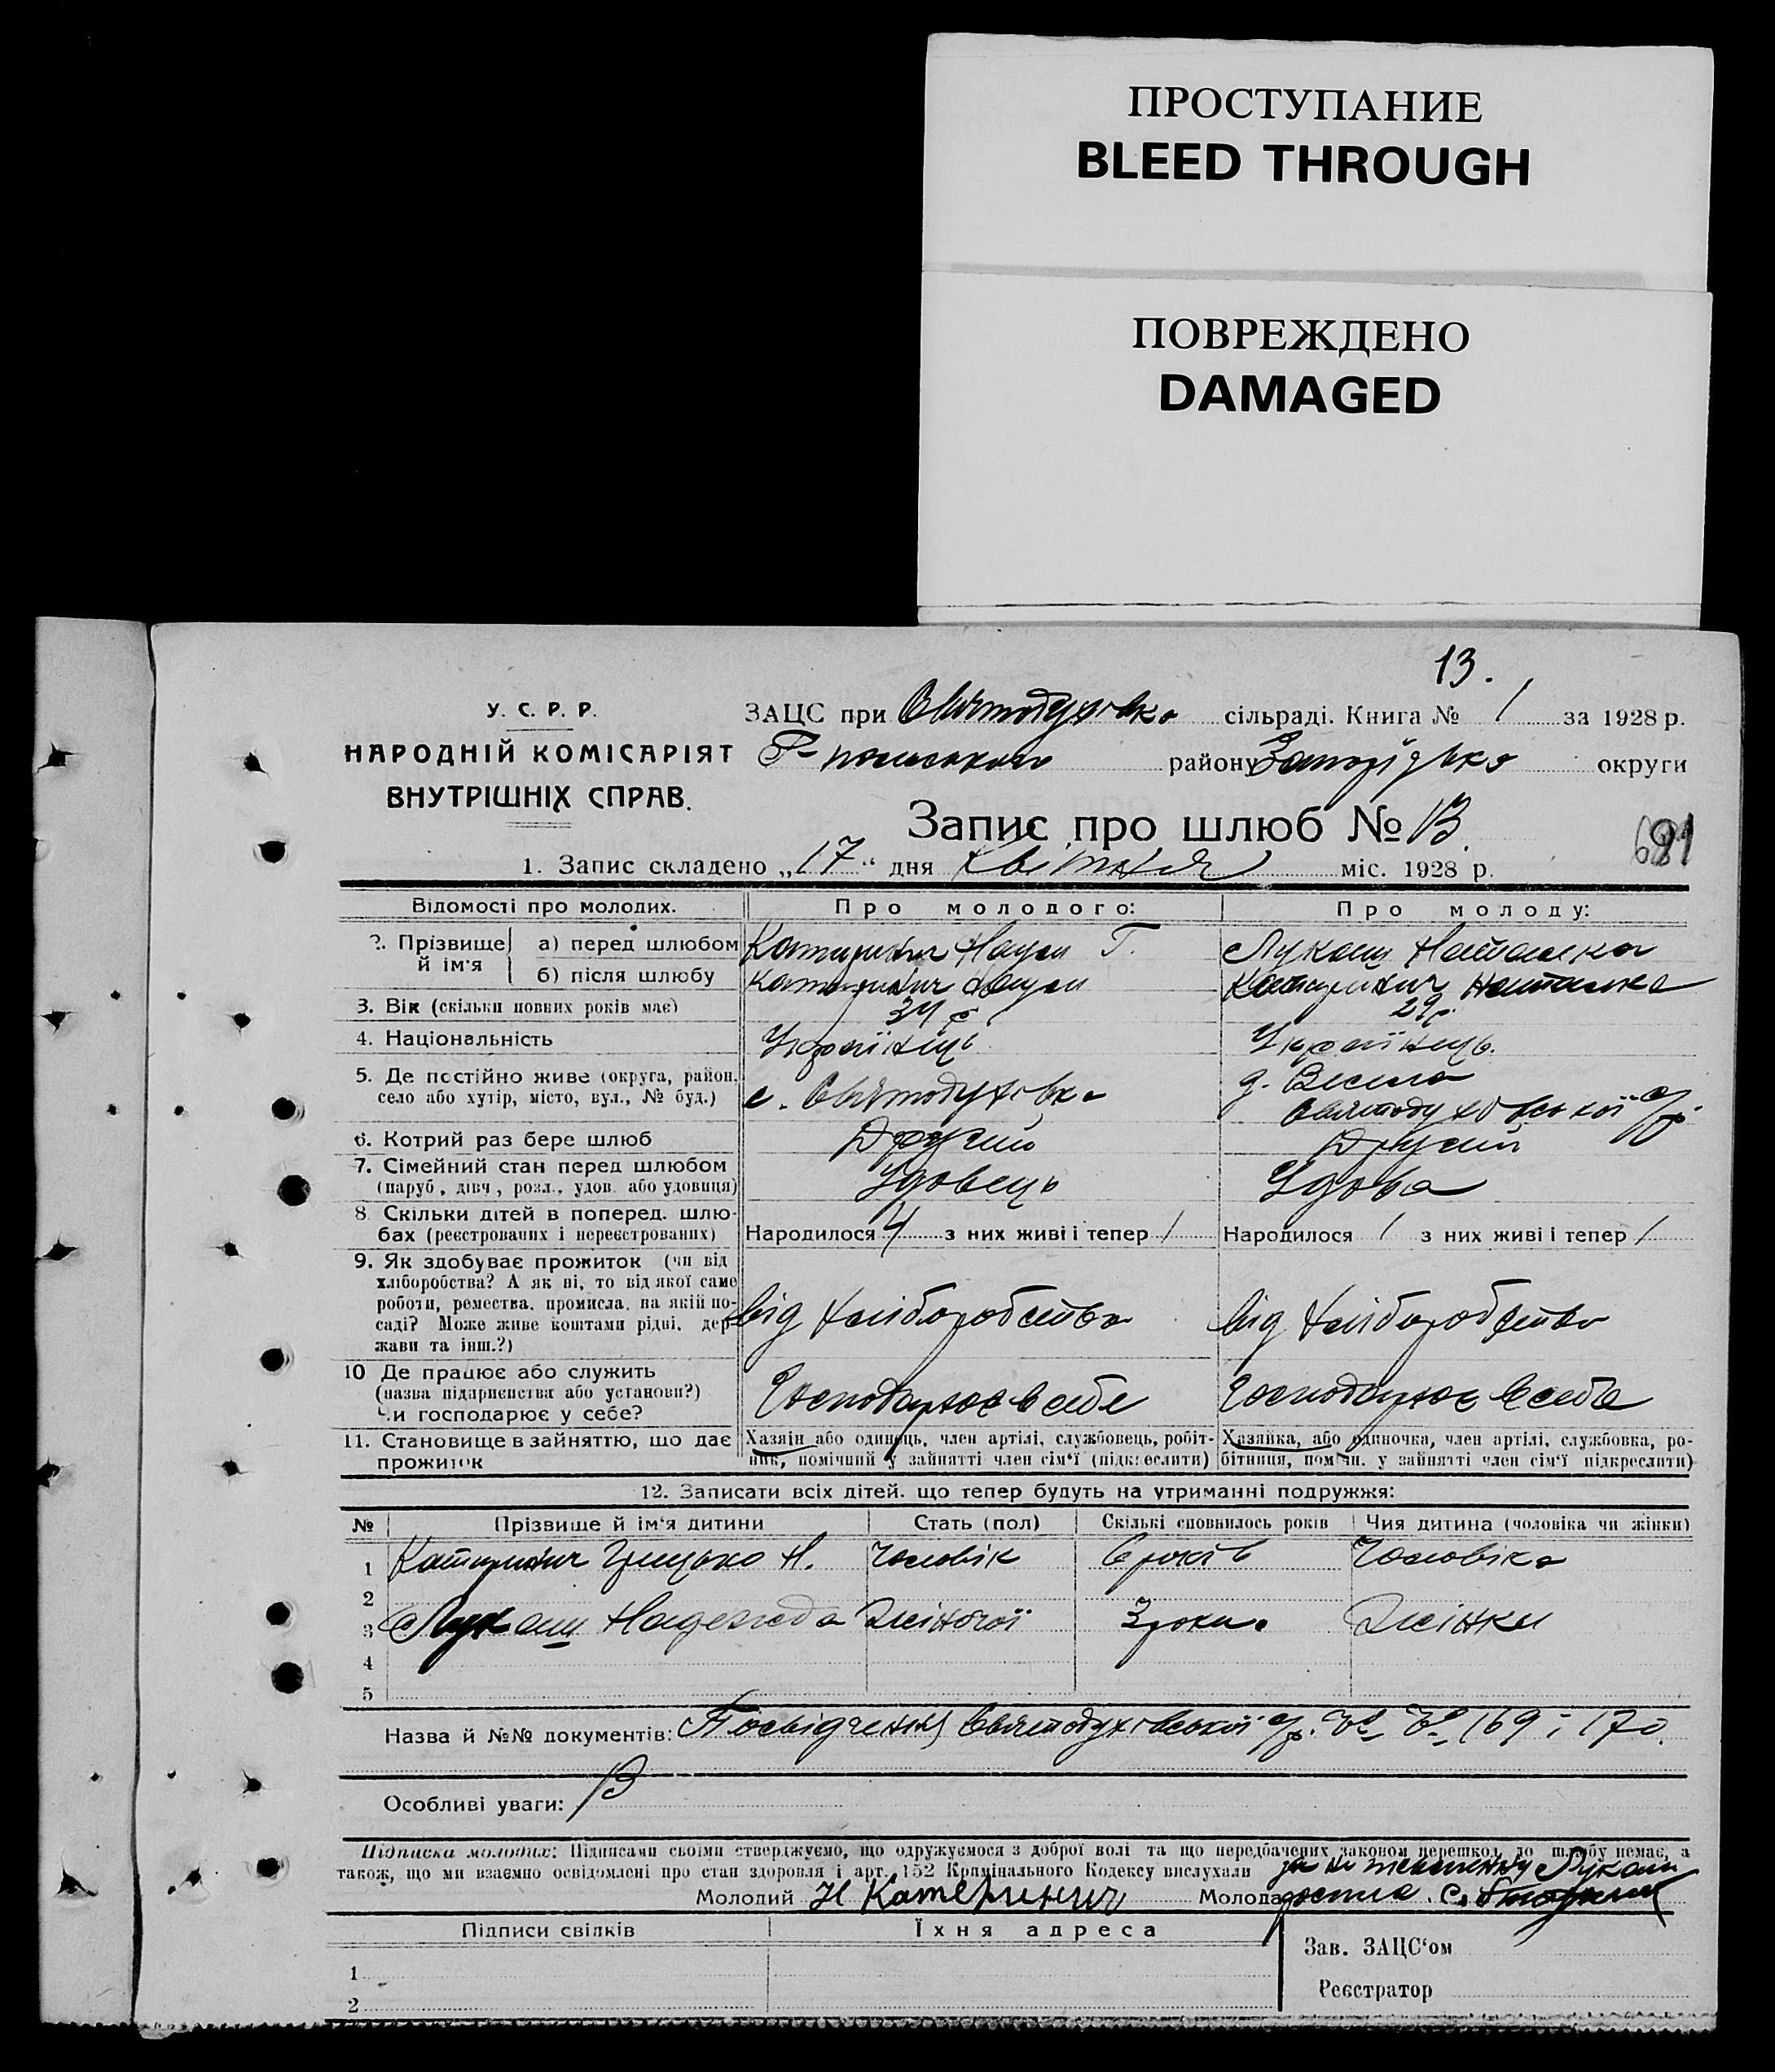 ПРОСТУПАНИЕ
BLEED THROUGH
ПОВРЕЖДЕНО
DAMAGED
13.
У. С. Р. Р.
НАРОДНІЙ КОМІСАРІЯТ
ВНУТРІШНІХ СПРАВ.
ЗАЦС при Святодухівка сільраді. Книга № 1 за 1928 р.
району Запоріжжя округи
Запис про шлюб № 13.
691
1. Запис складено „17“ дня квітня міс. 1928 р.
Відомості про молодих. Про молодого: Про молоду:
2. Прізвище й ім'я а) перед шлюбом Катиринич Наум Г. Лукаш Наталка
б) після шлюбу Катиринич Наум Катиринич Наталка
3. Вік (скільки повних років має) 34 р. 29 р.
4. Національність Українець Українець.
5. Де постійно живе (округа, район, село або хутір, місто, вул., № буд.) с. Святодухівка д. Весела Святодухівської с/р.
6. Котрий раз бере шлюб Другий Другий
7. Сімейний стан перед шлюбом (паруб., дівч., розл., удов. або удовиця) Удовець Удова
8. Скільки дітей в поперед. шлюбах (реєстрованих і нереєстрованих) Народилося 4 з них живі і тепер 1 Народилося 1 з них живі і тепер 1
9. Як здобуває прожиток (чи від хліборобства? А як ні, то від якої саме роботи, ремества, промисла, на якій посаді? Може живе коштами рідні, держави та інш.?) від хліборобства від хліборобства
10. Де працює або служить (назва підприємства або установи?) Чи господарює у себе? Господарює в себе Господарює в себе
11. Становище в зайняттю, що дає прожиток Хазяін або одинець, член артілі, службовець, робітник, помічний у зайнятті член сім'ї (підкреслити) Хазяйка, або одиночка, член артілі, службовка, робітниця, помічн. у зайнятті член сім'ї підкреслити)
12. Записати всіх дітей, що тепер будуть на утриманні подружжя:
№ Прізвище й ім'я дитини Стать (пол) Скількі сповнилось років Чия дитина (чоловіка чи жінки)
1 Катиринич Грицько Н. Чоловік 6 років Чоловіка
2
3 Лукаш Надежда Жіночої 3 роки. Жінки
4
5
Назва й №№ документів: Посвідчення Святодухівської с/р. № № 169 і 170.
Особливі уваги:
Підписка молодих: Підписами своїми стверджуємо, що одружуємося з доброї волі та що передбачених законом перешкод до шлюбу немає, а
також, що ми взаємно освідомлені про стан здоровля і арт. 152 Крімінального Кодексу вислухали
Молодий Н Катеринич Молода
Лукаш
Підписи свідків Їхня адреса
Зав. ЗАЦС'ом
1
Реєстратор
2